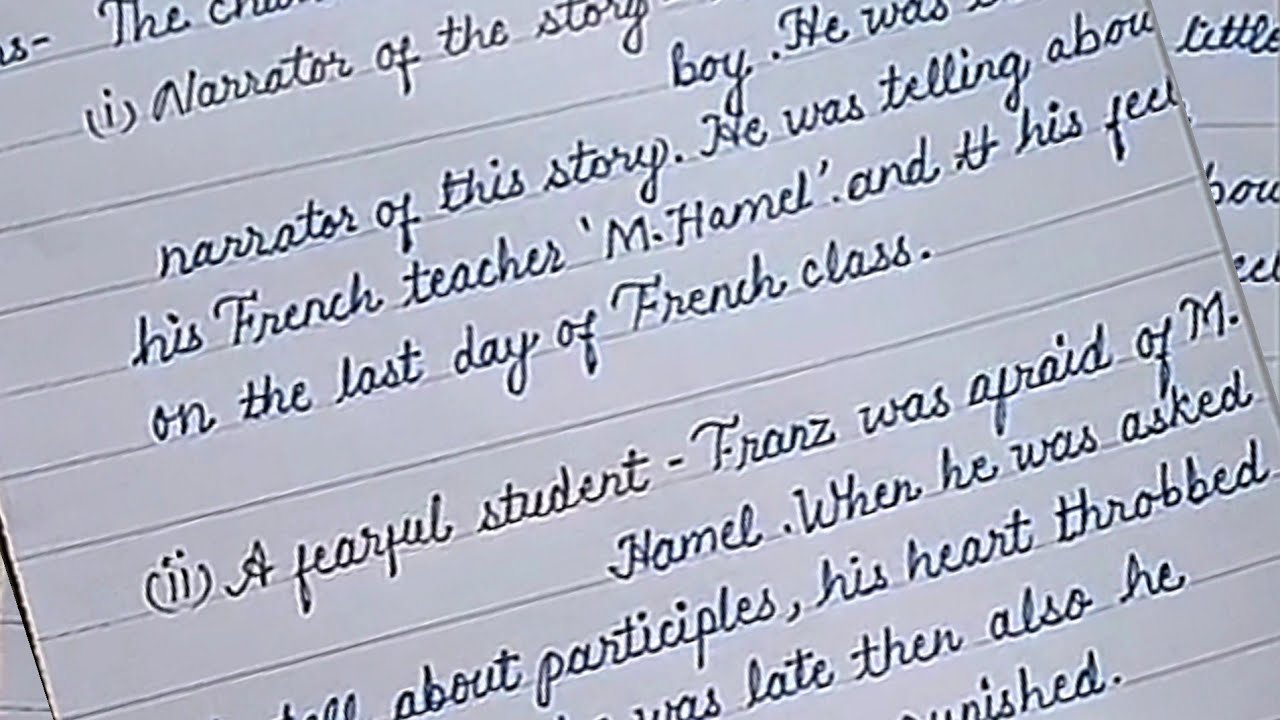 The
(i) Narrator of the story
boy. He was
narrator of this story. He was telling abou
his French teacher 'M. Hamel'. and his feel
on the last day of French class.
(ii) A fearful student - Franz was afraid of M.
Hamel. When he was asked
about participles, his heart throbbed
was late then also he
punished.
little